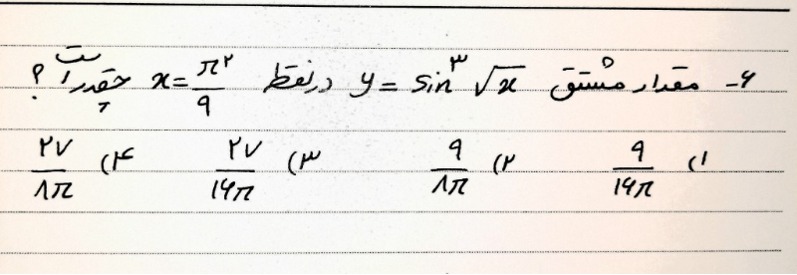 ۶- مقدار مشتق y = sin³ √x در نقطهٔ x = π²/۹ چقدر است ؟
۱) ۹/۱۶π ۲) ۹/۸π ۳) ۲۷/۱۶π ۴) ۲۷/۸π